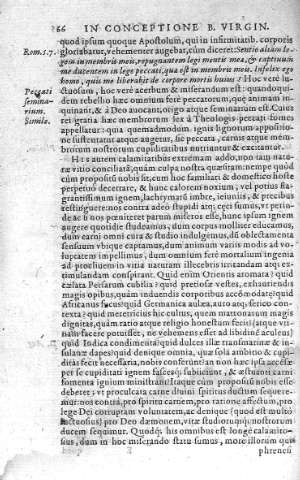 66 IN CONCEPTIONE B. VIRGIN.
quod ipsum quoque Apostolum, qui in infirmitatib. corporis
Rom. 7. gloriabatur, vehementer augebat, cùm diceret: Sentio aliam le-
gem in membris meis, repugnantem legi mentis meæ, & captivum
me ducentem in lege peccati, quæ est in membris meis. Infelix ego
homo, quis me liberabit de corpore mortis huius? Hoc verè lu-
Peccati ctuosum, hoc verè acerbum & miserandum est: quando qui-
semina- dem rebellio hæc omnium ferè peccatorum, quæ animam in-
rium. quinant, & à Deo avocant, origo atque seminarium est. Cuius
Simile. rei gratia hæc membrorum lex à Theologis peccati fomes
appellatur: quia quemadmodum ignis lignorum appositio-
ne sustentatur atque augetur, sic peccata, carnis atque mem-
brorum nostrorum cupiditatibus nutriuntur & excitantur.
His autem calamitatibus extremam addo, non tam natu-
ræ vitio conciliatam, quàm culpa nostra, quàm nemo
propositò nobis sit, cum hoc familiari & domestico hoste
perpetuò decertare, & hunc calorem noxium, vel potius fla-
grantissimum ignem, lachrymarum imbre, ieiuniis, & precibus
restinguere: nos contra adeo stupidi
de ac si nos pœniteret parum miseros esse, hunc ipsum ignem
augere quotidie studeamus, dum corpus mollius educamus,
dum carni omni cura & studio indulgemus, dum oblectamenta
sensuum vbique captamus, dum animum variis modis ad vo-
luptatem impellimus, dum omnium ferè mortalium ingenia
ad proclivem in vitia naturam illecebris irritandam atque ex-
timulandam conspirant. Quid enim Orientis aromata? quid
Persarum cubilia? quid pretiosæ vestes, exhauriendis
magis opibus, quàm induendis corporibus accommodatæ? quid
Africanus quid Germanica aulæa, auro atque serico con-
texta? quid meretricius hic cultus, quem matronarum magis
dignitas, quàm ratio atque religio honestam fecit (atque vti-
nam facere potuisset, ne vehemens esset ad libidinem aculeus)
quid Indica condimenta? quid dulces illæ transmarinæ & in-
sulanæ dapes? quid denique omnia, quæ sola ambitio & cupi-
ditas fecit necessaria, nobis conferunt? an non hæc ipsa accen-
per se cupiditati ignem faces subiiciunt, & æstuanti carni
fomenta ignium ministrant? Itaque cùm propositum nobis esse
deberet, vt proculcata carne divini spiritus ductum sequere-
mur: nos contra, pro spiritu carnem, pro ratione affectum, pro
lege Dei corruptam voluntatem, ac denique (quod est multò
luctuosius) pro Deo dæmonem, vitæ studiorumque nostrorum
ducem sequimur. Quodque his omnibus est longè calamito-
sius, dum in hoc miserando statu sumus, more illorum qui
phreneti